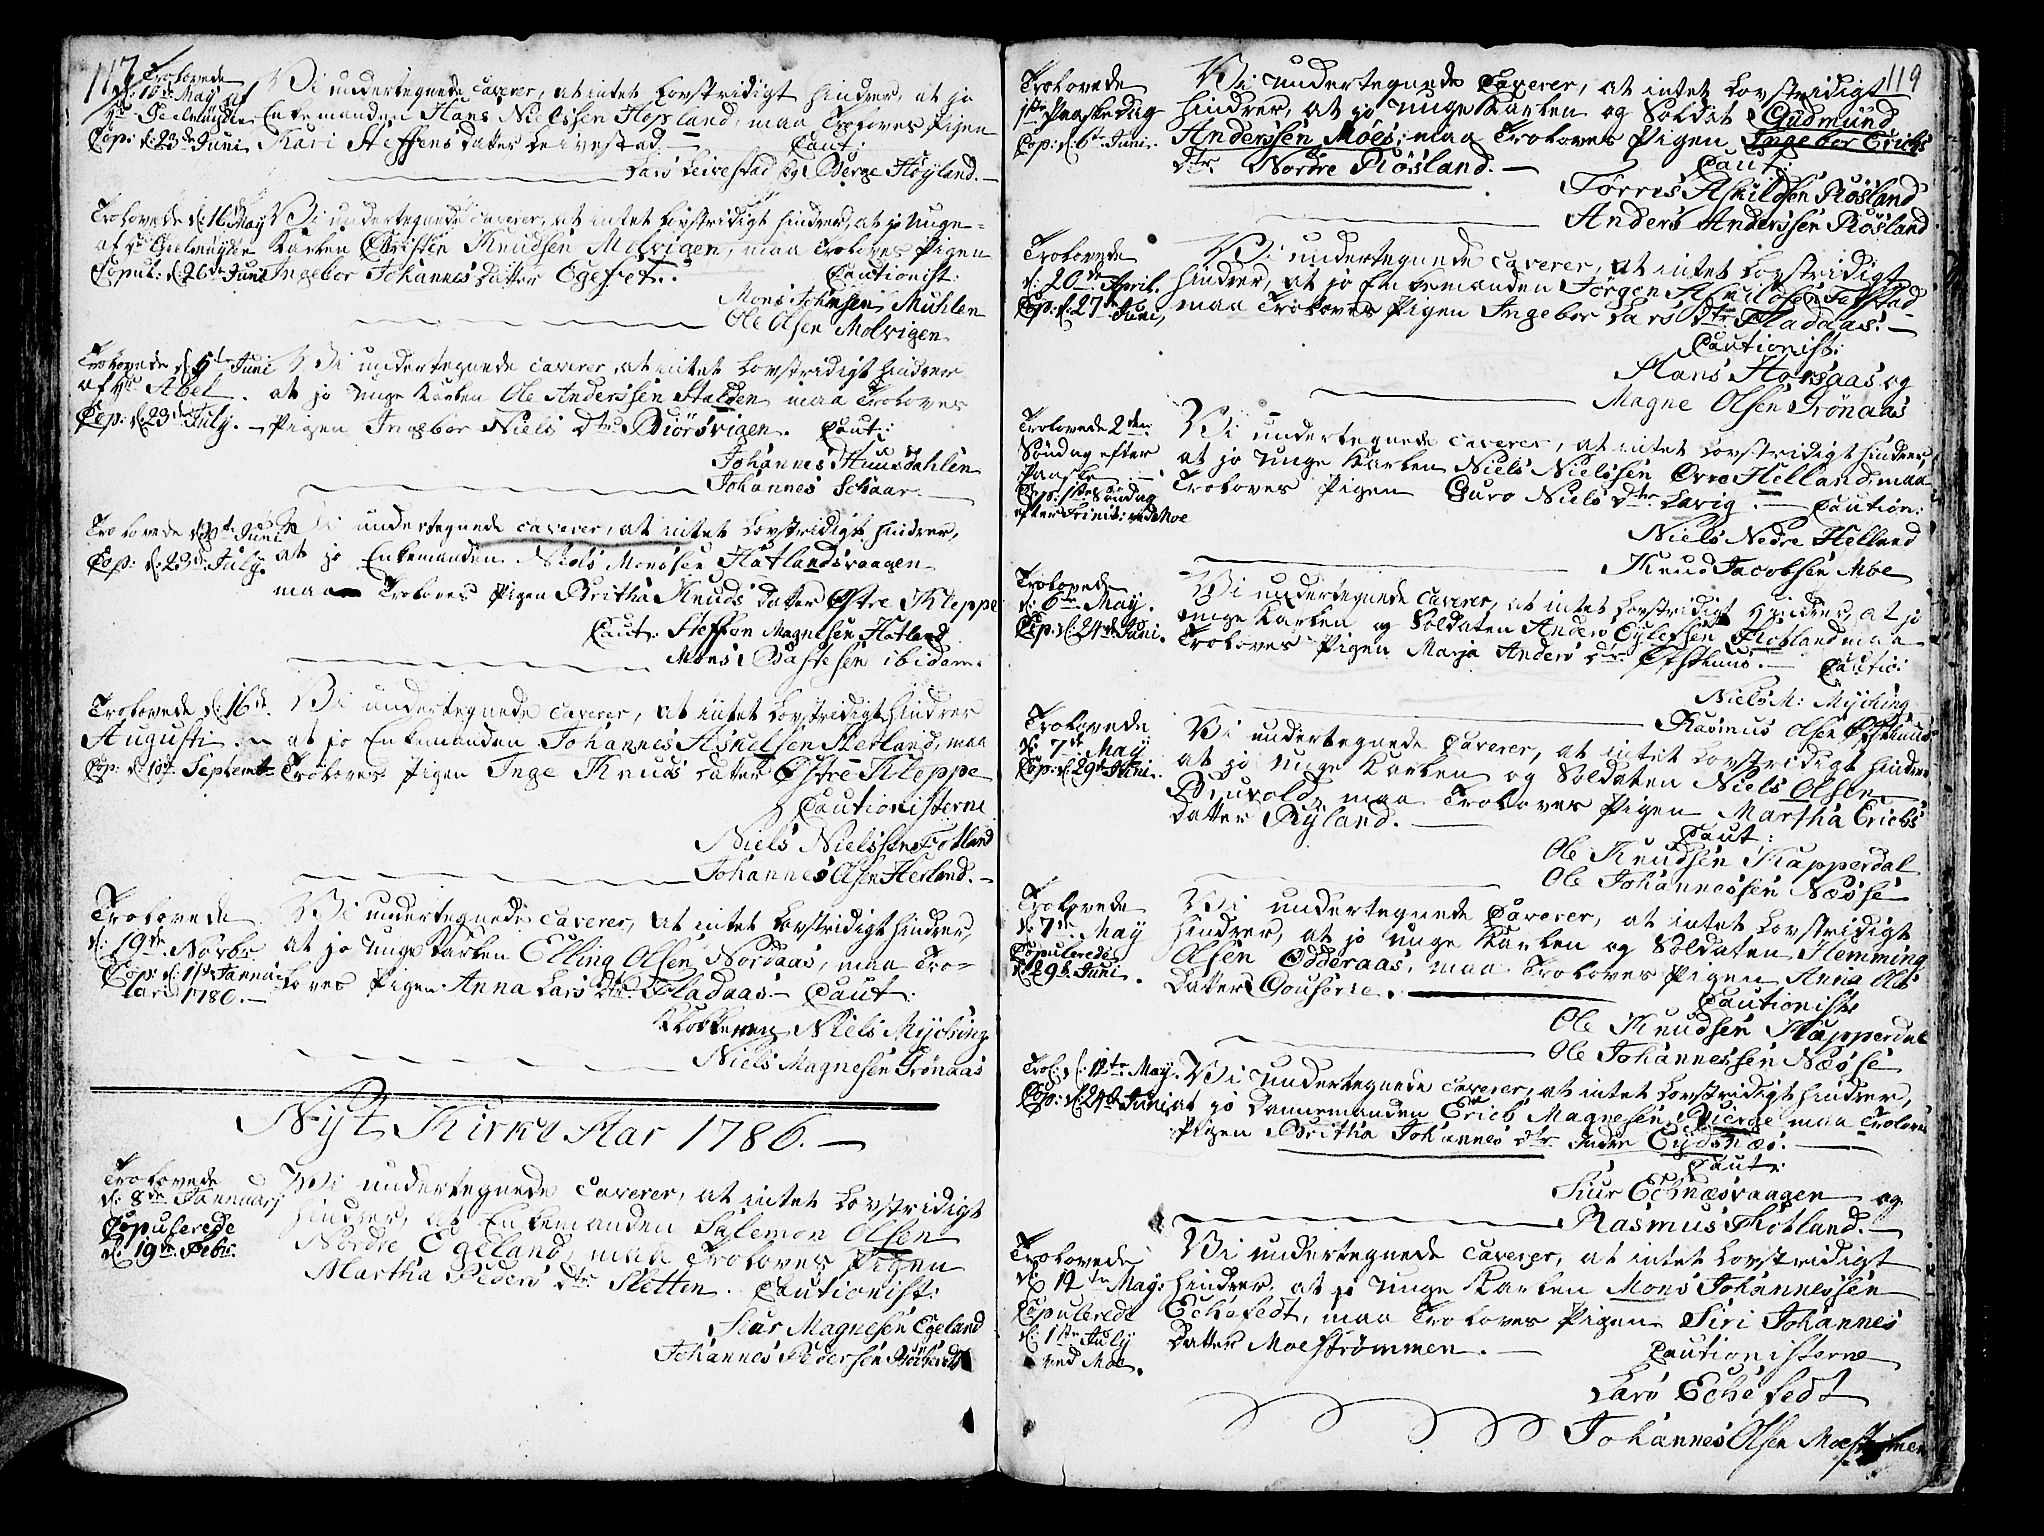 117
Trolovede
d: 10de May af
Hr Gielmuyden
Cop: d: 23de Juni
Vi undertegnede caverer, at intet Lovstridigt hindrer, at jo
Enkemanden Hans Nielssen Hopland, maa Troloves Pigen
Kari Steffens datter Leivestad. — Caut:
Lars Leivestad og Berge Høyland. —
Trolovede d: 16 May
af Hr Gielmuyden
Copul: d: 26de Juni
Vi undertegnede caverer, at intet Lovstridigt hindrer, at jo unge-
Karlen Christen Knudsen Molvigen, maa Troloves Pigen
Ingebor Johannes datter Egeset. Cautionist:
Mons Johnsen Muhlen
Ole Olsen Molvigen
Trolovede d: 5te Juni
af Hr Abel.
Cop: d: 23de July. —
Vi undertegnede caverer, at intet Lovstridigt hindrer
at jo unge Karlen Ole Anderssen Stalden maa Troloves
Pigen Ingebor Niels Dtr Biørsvigen. Caut:
Johannes Huusdahlen
Johannes Schaar. —
Trolovede Juni
Cop: d: 23de July.
Vi undertegnede caverer, at intet Lovstridigt hindrer,
at jo Enkemanden Niels Monssen Hatlandsvaagen
maa Troloves Pigen Britha Knuds datter Østre Kleppe
Caut: Steffen Magnesen Hatland
Mons Bastesen ibidem.
Trolovede d: 16de
Augusti
Cop: d: 10de Septembr
Vi undertegnede caverer, at intet Lovstridigt hindrer
at jo Enkemanden Johannes Askelsen Herland, maa
Troloves Pigen Inge Knuds datter Østre Kleppe
Cautionisterne
Niels Nielssen Fotland
Johannes Olsen Herland. —
Trolovede
d: 19de Novbr
Cop: d: 1ste Janua-
rii 1786. —
Vi undertegnede caverer, at intet Lovstridigt hindrer,
at jo unge Karlen Elling Olsen Nordaas, maa Tro-
loves Pigen Anna Lars Dtr Fladaas — Caut:
Klokkeren Niels Myching
Niels Magnesen Trønaas
Nyt Kirke Aar 1786. —
Trolovede
d: 8de Januarj
Copulerede
d: 19de Febr.
Vi undertegnede caverer, at intet Lovstridigt
hindrer, at Enkemanden Salemon Olsen
Nordre Egeland, maa Troloves Pigen
Martha Peders Dtr Sletten. Cautionist:
Siur Magnesen Egeland
Johannes Pedersen
119
Trolovede
1ste Paaskedag
Cop: d: 6te Juni.
Vi undertegnede Caverer, at intet Lovstridigt
hindrer, at jo unge Karlen og Soldat Gudmund
Anderssen Moes, maa Troloves Pigen Ingebor Erichs
Dtr Nordre Røsland. — Caut:
Torres Askildsen Røsland
Anders Anderssen Røsland
Trolovede
d: 20de April.
Cop: d: 27de Juni,
Vi undertegnede caverer, at intet Lovstridigt
hindrer, at jo Enkemanden Jørgen Askildsen Tefstad
maa Troloves Pigen Ingebor Lars Dtr Fladaas. —
Cautionist:
Hans Horsaas og
Magne Olsen Trønaas
Trolovede 2den
Søndag efter
Paaske —
Cop. 1ste Søndag
efter Trinit: ved Moe
Vi undertegnede caverer, at intet Lovstridigt hindrer,
at jo unge Karlen Niels Nielssen Øvre Helland, maa
Troloves Pigen Guro Niels Dtr Lavig. — Caution:
Niels Nedre Helland
Knud Jacobsen Moe
Trolovede
d: 6te May.
Cop: d: 24de Juni.
Vi undertegnede Caverer, at intet Lovstridigt hindrer, at jo
unge Karlen og Soldaten Anders Eylefsen Fotland maa
Troloves Pigen Marja Anders Dtr Østhuus. — Cautio:
Niels M: Myching
Rasmus Olsen Østhuus
Trolovede
d: 7de May
Cop: d: 29de Juni.
Vi undertegnede Caverer, at intet Lovstridigt hindrer
at jo unge Karlen og Soldaten Niels Olsen
Bruvold, maa Troloves Pigen Martha Erichs
datter Ryland. — Caut:
Ole Knudsen Kapperdal
Ole Johannessen Næsse
Trolovede
d: 7de May
Copulerede
d: 29de Juni.
Vi undertegnede Caverer, at intet Lovstridigt
hindrer, at jo unge Karlen og Soldaten Flemming
Olsen Odderaas, maa Troloves Pigen Anna Ols
datter Gouserie. Cautionist:
Ole Knudsen Kapperdal
Ole Johannessen Næsse
Trol: d: 12te May.
Cop: d: 24de Juni
Vi undertegnede caverer, at intet Lovstridigt hindrer,
at jo Dannemanden Erich Magnesen Bierge maa Trolove
Pigen Britha Johannes Dtr Indre Eydsnæs. —
Caut:
Siur Edsnæsvaagen og
Rasmus Kotland. —
Trolovede
d: 12te May:
Copulerede
d: 1ste July
ved Moe.
Vi undertegnede caverer, at intet Lovstridigt
hindrer, at jo unge Karlen Mons Johannessen
Echefedt, maa Troloves Pigen Siri Johannes
datter Moestrømmen. — Cautionisterne
Lars Echefedt
Johannes Olsen Moestrømmen